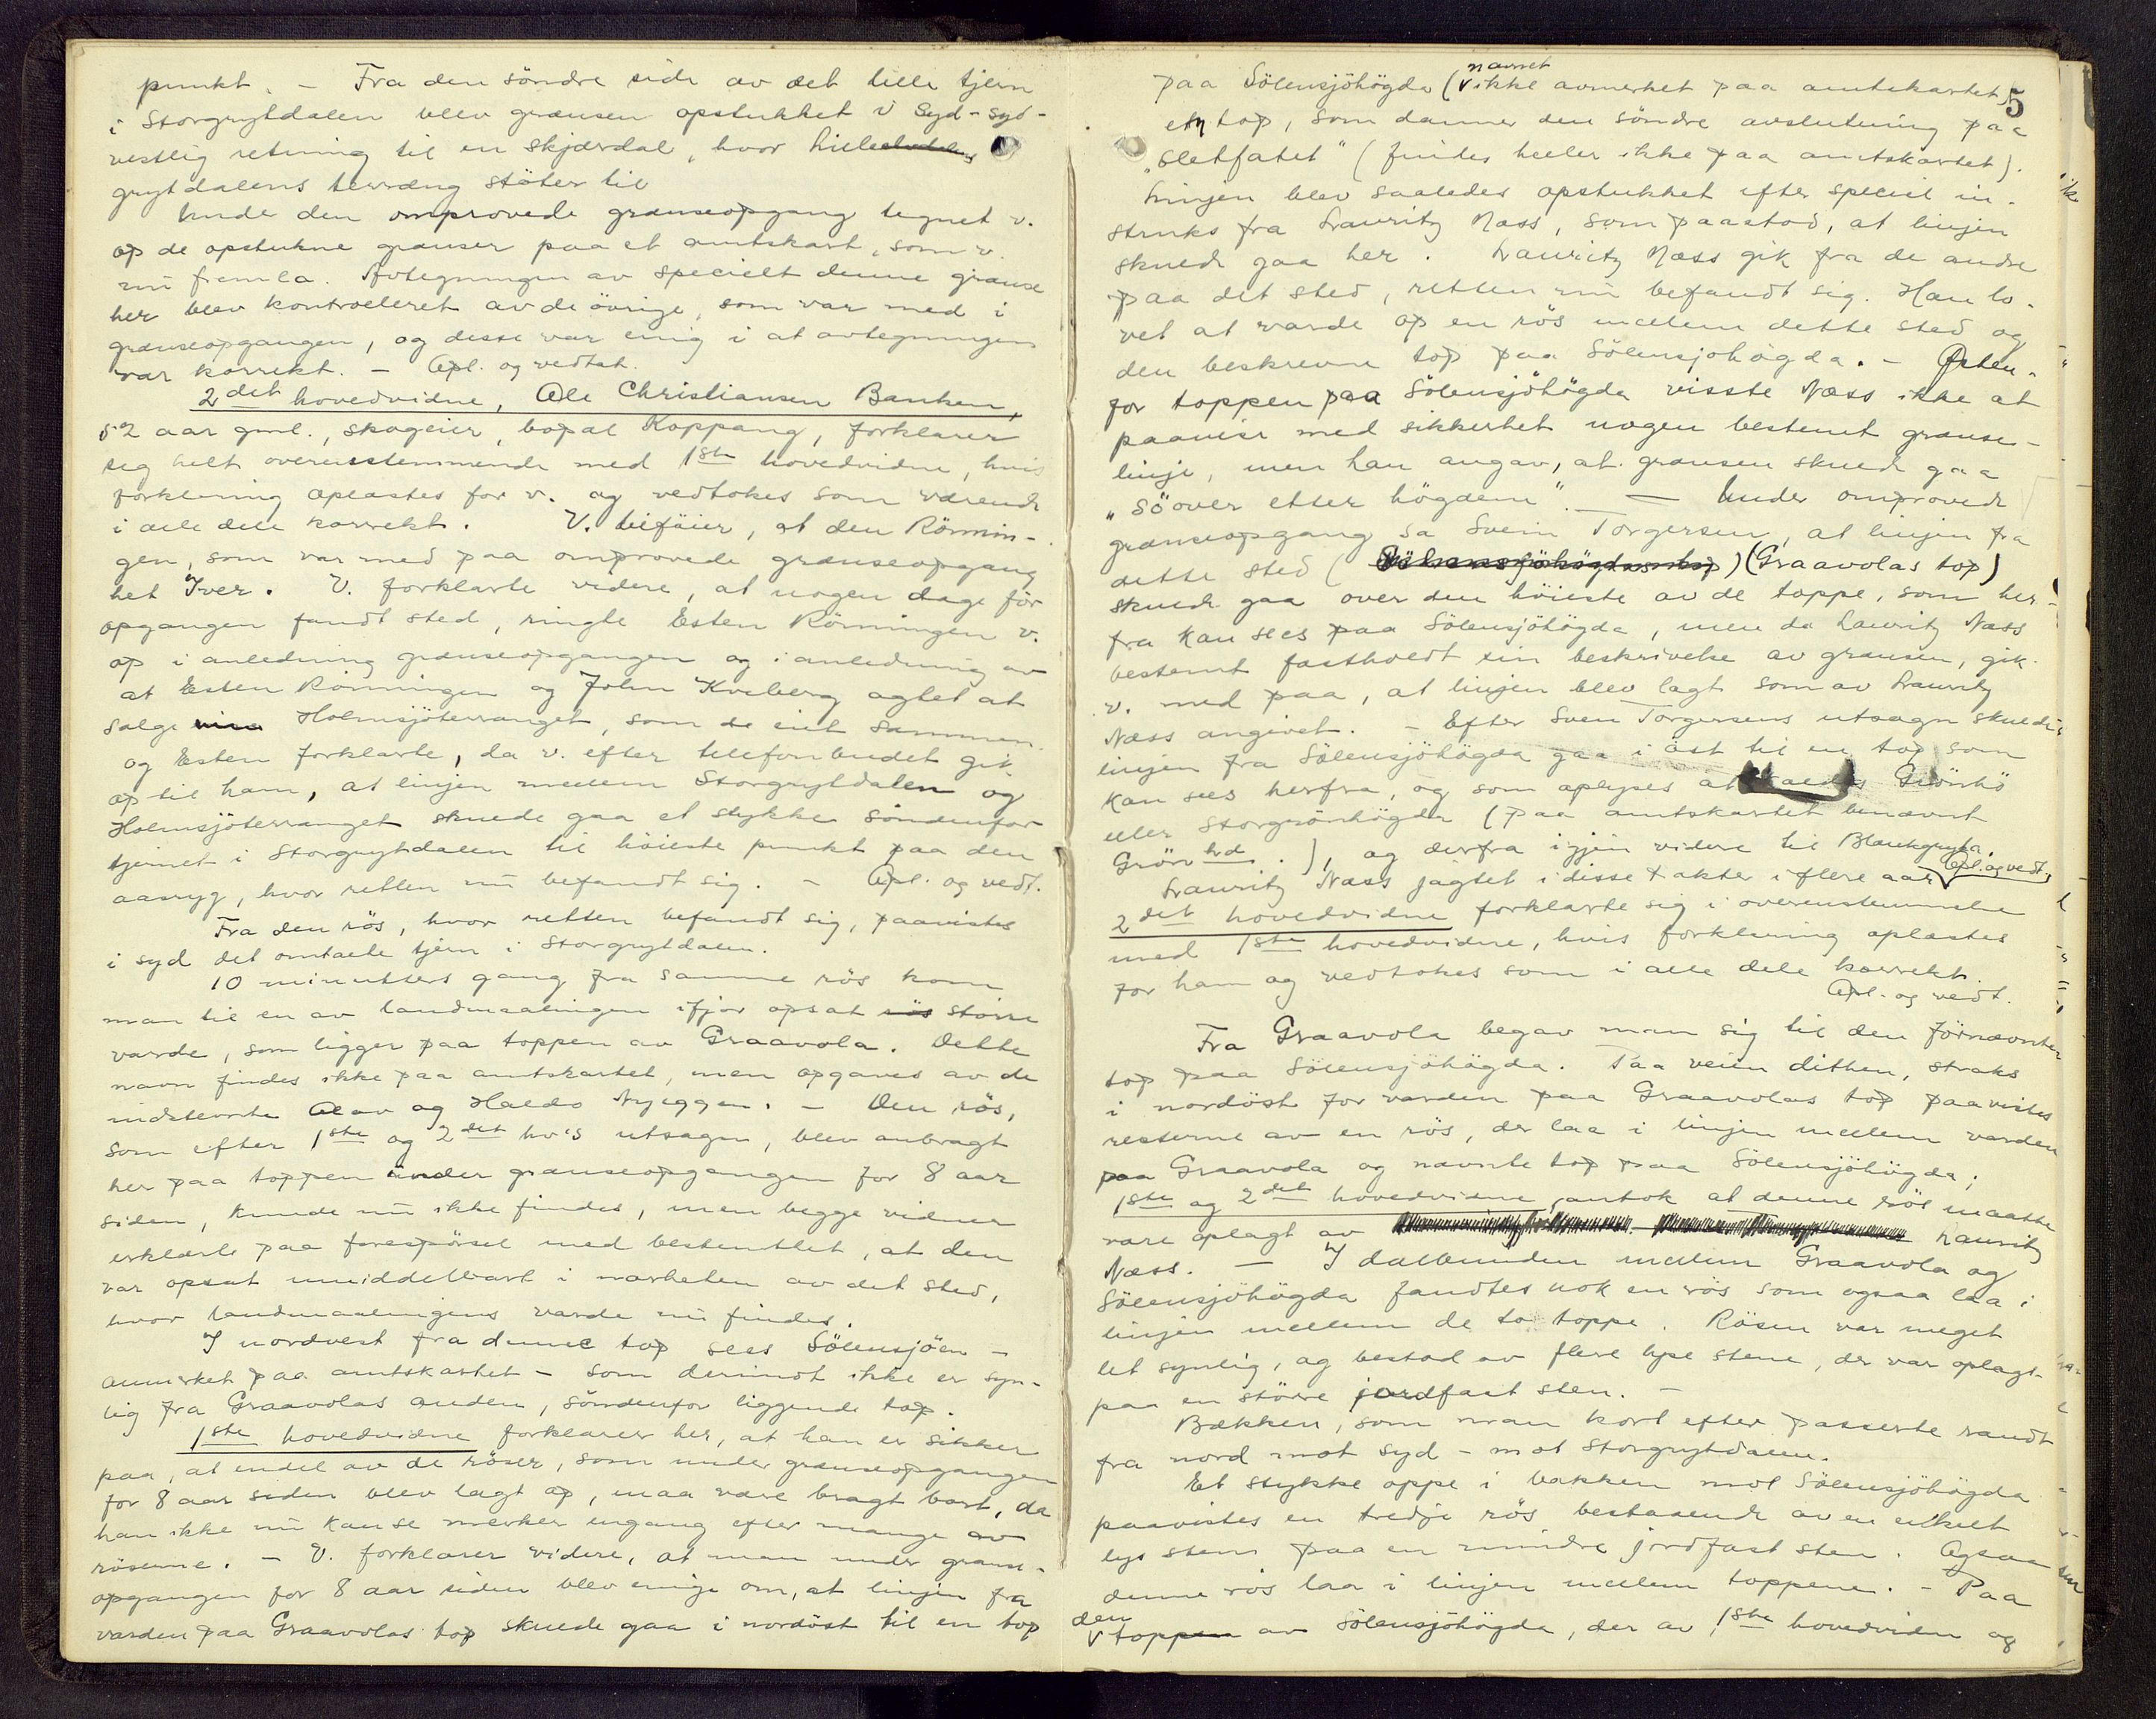 punkt. - Fra den söndre side av det lille tjern
i Storgrytdalen blev grænsen opstukket i Syd-syd-
vestlig retning til en skjærdal, hvor Lille
grytdalens terræng stöter til
Under den omprovede grænseopgang tegnet v.
op de opstukne grænser paa et amtskart, som v.
nu fremla. Avtegningen av specielt denne grænse
her blev kontrolleret av de övrige, som var med i
grænseopgangen, og disse var enig i at avtegningen
var korrekt. - Opl. og vedtat.
2det hovedvidne, Ole Christiansen Banken,
52 aar gml., skogeier, bopæl Koppang, forklarer
sig helt overensstemmende med 1ste hovedvidne, hvis
forklaring oplæstes for v. og vedtokes som værende
i alle dele korrekt. V. tilföier, at den Rönnin-
gen, som var med paa omprovede grænseopgang
het Iver. V. forklarte videre, at nogen dage för
opgangen fandt sted, ringte Esten Rönningen v.
op i anledning grænseopgangen og i anledning av
at Esten Rönningen og John Kveberg agtet at
sælge Holmsjöterrænget, som de eiet sammen.
og Esten forklarte, da v. efter telefonbudet gik
op til ham, at linjen mellem Storgrytdalen og
Holmsjöterrænget skulde gaa et stykke söndenfor
tjernet i Storgrytdalen til höieste punkt paa den
aasryg, hvor retten nu befandt sig. - Opl. og vedt.
Fra den rös, hvor retten befandt sig, paavistes
i syd det omtalte tjern i Storgrytdalen.
10 minutters gang fra samme rös kom
man til en av landmaalingen ifjor opsat rös större
varde, som ligger paa toppen av Graavola. Dette
navn findes ikke paa amtskartet, men opgaves av de
indstevnte Olav og Haldo Nyeggen. - Den rös,
som efter 1ste og 2det hv's utsagn, blev anbragt
her paa toppen under grænseopgangen for 8 aar
siden, kunde nu ikke findes, men begge vidner
erklærte paa forespörsel med bestemthet, at den
var opsat umiddelbart i nærheten av det sted,
hvor landmaalingens varde nu findes.
I nordvest fra denne top sees Sölensjöen -
anmerket paa amtskartet - som derimot ikke er syn-
lig fra Graavolas anden, söndenfor liggende top.
1ste hovedvidne forklarer her, at han er sikker
paa, at endel av de röser, som under grænseopgangen
for 8 aar siden blev lagt op, maa være bragt bort, da
han ikke nu kan se merker engang efter mange av
röserne. - V. forklarer videre, at man under grænse-
opgangen for 8 aar siden blev enige om, at linjen fra
varden paa Graavolas top skulde gaa i nordöst til en top
5
paa Sölensjöhögda (navnet ikke avmerket paa amtskartet)
en top, som danner den söndre avslutning paa
"Sletfatet" (findes heller ikke paa amtskartet).
Linjen blev saaledes opstukket efter speciel in-
struks fra Lauritz Næss, som paastod, at linjen
skulde gaa her. Lauritz Næss gik fra de andre
paa det sted, retten nu befandt sig. Han lo-
vet at varde op en rös mellem dette sted og
den beskrevne top paa Sölensjöhögda. - Østen-
for toppen paa Sölensjöhögda visste Næss ikke at
paavise med sikkerhet nogen bestemt grænse-
linje, men han angav, at grænsen skulde gaa
"söover etter högdem". - Under omprovede
grænseopgang sa Svein Torgersen, at linjen fra
dette sted (Sölensjöhögdas top) (Graavolas top)
skulde gaa over den höieste av de toppe, som her-
fra kan sees paa Sölensjöhögda, men da Lauritz Næss
bestemt fastholdt sin beskrivelse av grænsen, gik
v. med paa, at linjen blev lagt som av Lauritz
Næss angivet. - Efter Svein Torgersens utsagn skulde
linjen fra Sölensjöhögda gaa i öst til en top som
kan sees herfra, og som oplyses at kaldes Grönhö
eller Storgrönhögda (paa amtskartet benævnt
Grön hd.), og derfra igjen videre til Blankgryta.
Lauritz Næss jagtet i disse trakter i flere aar. Opl. og vedt.
2det hovedvidne forklarte sig i overenstemmelse
med 1ste hovedvidne, hvis forklaring oplæstes
for ham og vedtokes som i alle dele korrekt.
Opl. og vedt.
Fra Graavola begav man sig til den förnævnte
top paa Sölensjöhögda. Paa veien dithen, straks
i nordöst for varden paa Graavolas top paavistes
resterne av en rös, der laa i linjen mellem varden
paa Graavola og nævnte top paa Sölensjöhögda;
1ste og 2det hovedvidne antok at denne rös maatte
være oplagt av Lauritz
Næss. - I dalbunden mellem Graavola og
Sölensjöhögda fandtes nok en rös som ogsaa laa i
linjen mellem de to toppe. Rösen var meget
let synlig, og bestod av flere lyse stene, der var oplagt
paa en större jordfast sten. -
Bækken, som man kort efter passerte randt
fra nord mot syd - mot Storgrytdalen.
Et stykke oppe i bakken mot Sölensjöhögda
paavistes en tredje rös bestaaende av en enkelt
lys sten paa en mindre jordfast sten. Ogsaa
denne rös laa i linjen mellem toppene. - Paa
den toppen av Sölensjöhögda, der av 1ste hovedvidne og